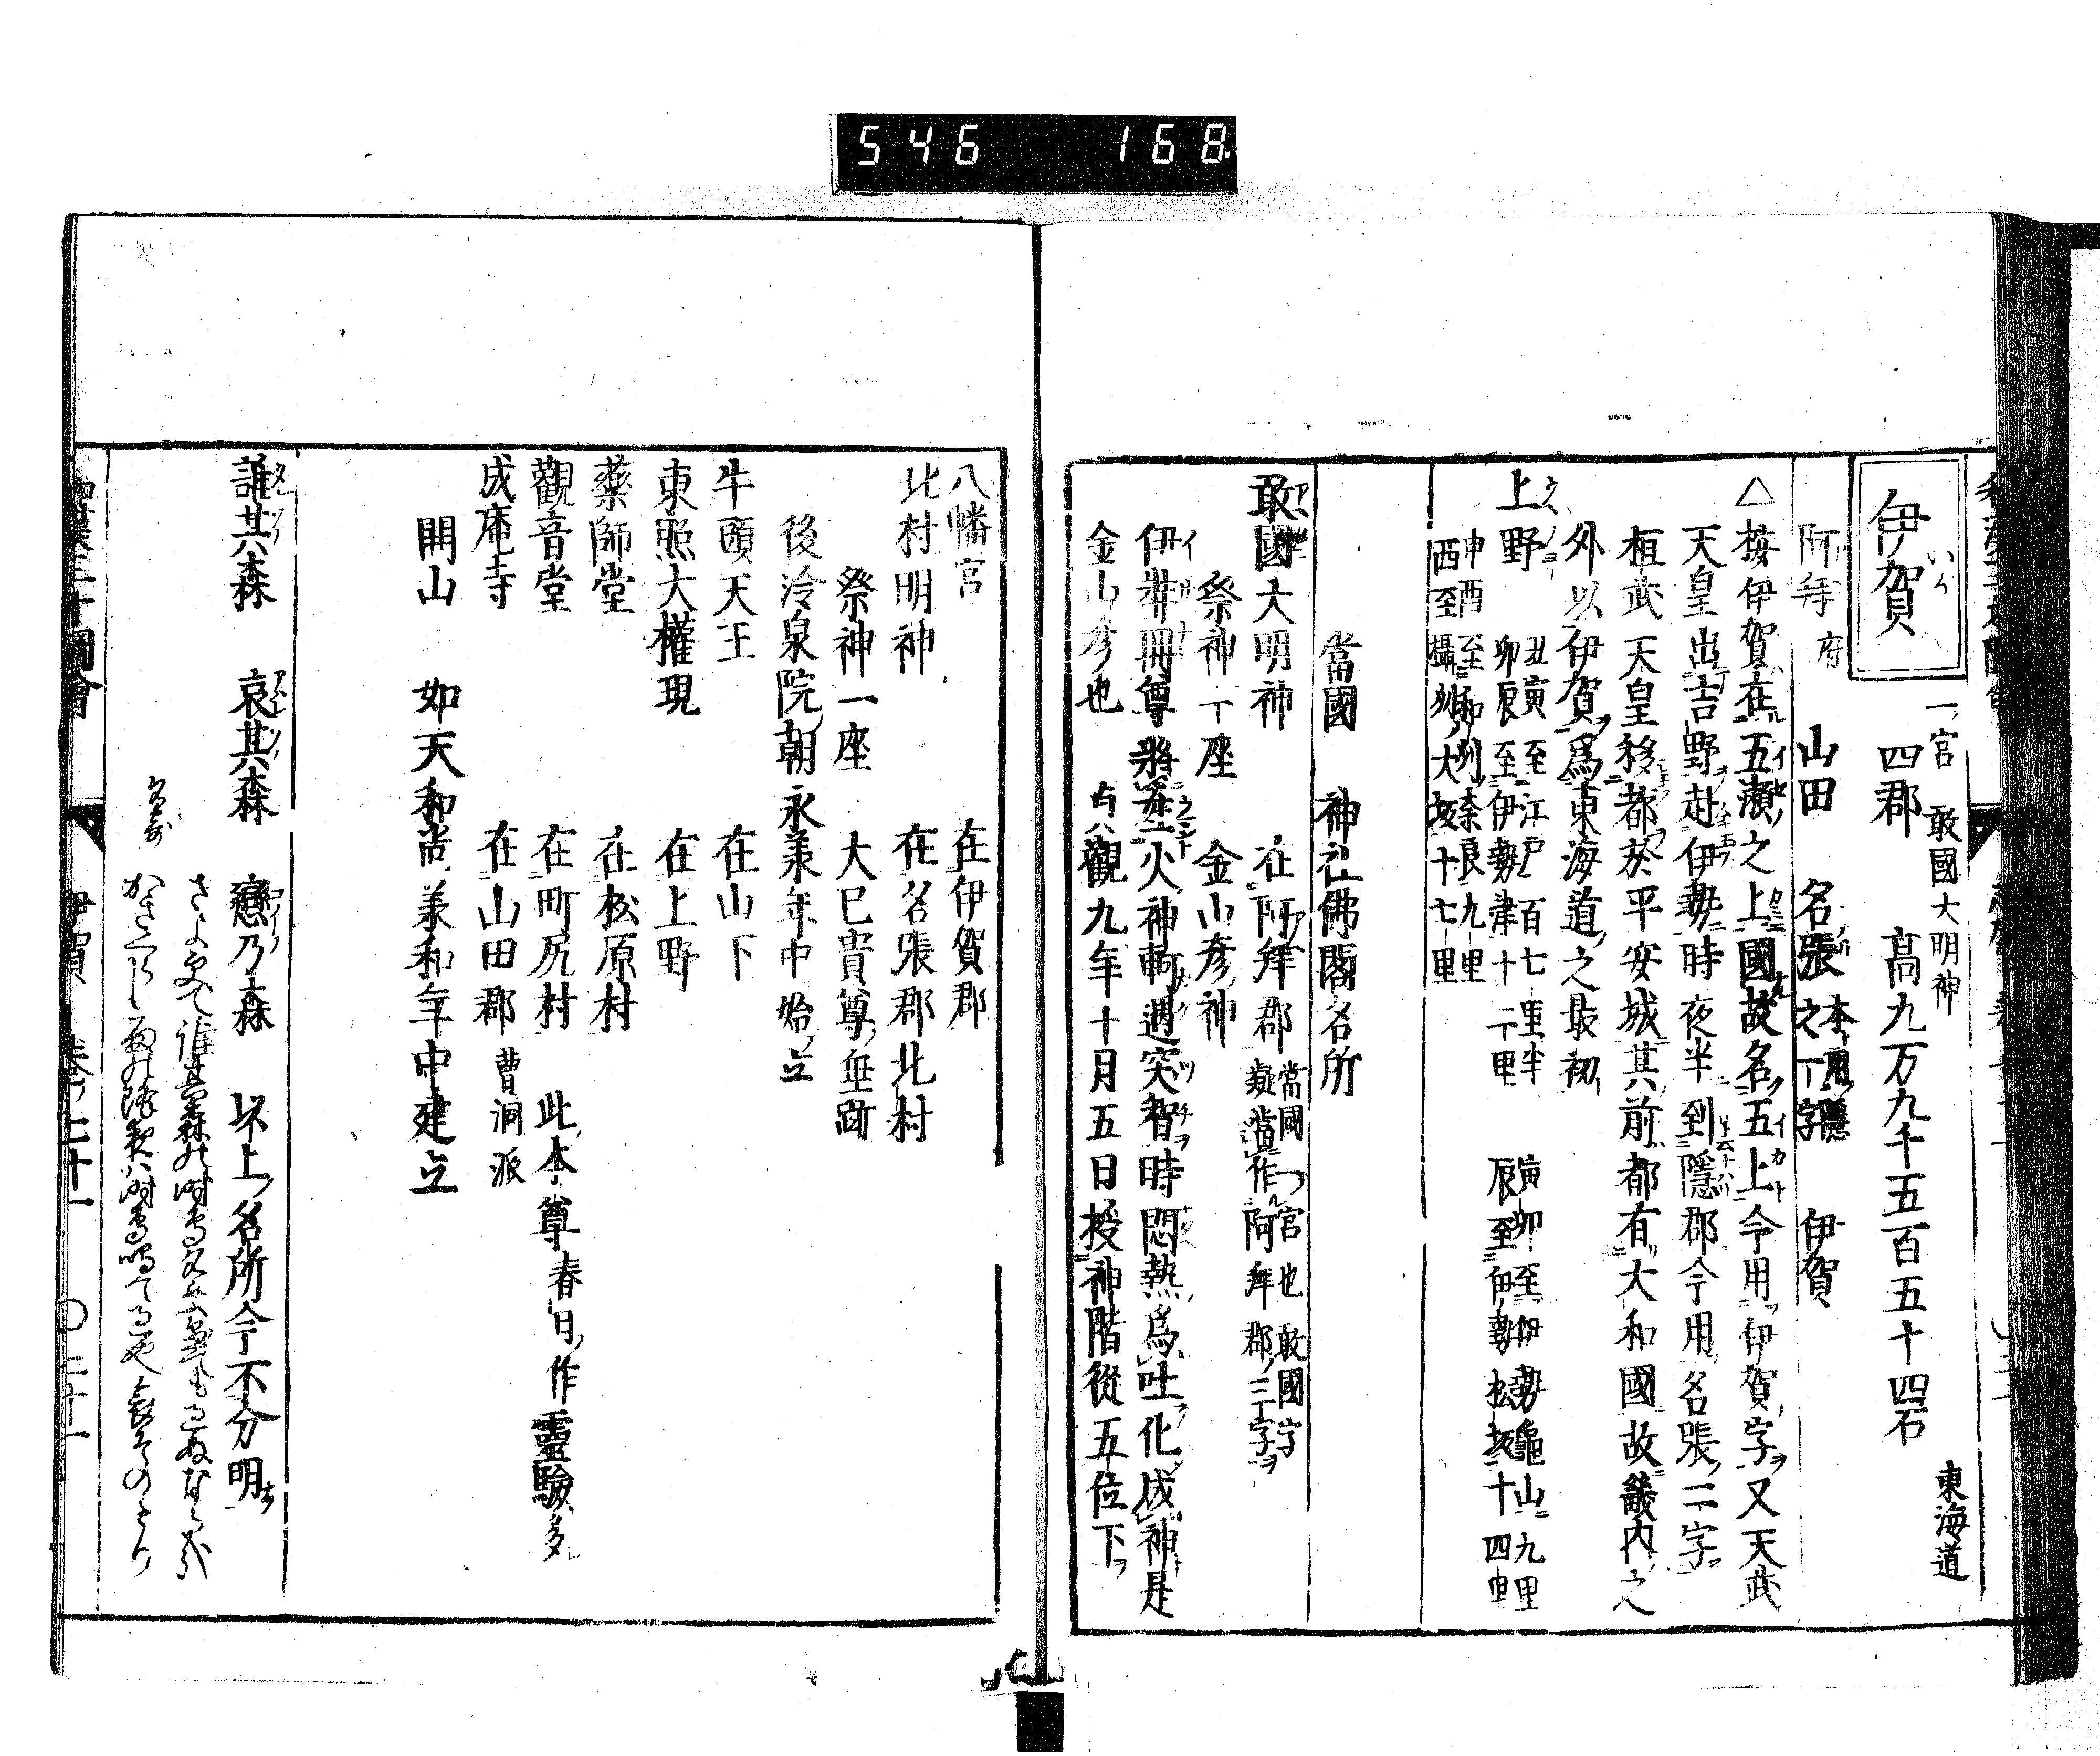 546 168
伊賀
いか
一宮 敢國大明神 東海道
四郡 高九万九千五百五十四石
阿拜 府 山田 名張 本用隱之一字 伊賀
△按伊賀在五瀬之上國故名五上今用伊賀字又天武
天皇出吉野赴伊勢時夜半到隱郡今用名張二字
桓武天皇移都於平安城其前都有大和國故畿内之
外以伊賀爲東海道之最初
上野 丑寅至江戸百七里半 寅卯至伊勢龜山九里
卯辰至伊勢津十二里 辰至伊勢松坂十四里
申酉至和州奈良九里
西至攝州大坂十七里
當國 神社佛閣名所
敢國大明神 在阿拜郡 當國一宮也敢國字
疑當作阿拜郡三字
祭神二座 金山彦神
伊弉冊尊將生火神軻遇突智時悶熱爲吐化成神是
金山彦也 貞觀九年十月五日授神階從五位下
八幡宮 在伊賀郡
北村明神 在名張郡北村
祭神一座 大已貴尊垂跡
後冷泉院朝永承年中始立
牛頭天王 在山下
東照大權現 在上野
藥師堂 在松原村
觀音堂 在町尻村 此本尊春日作靈驗多
成庵寺 在山田郡 曹洞派
開山 如天和尚承和年中建立
誰其森 哀其森 戀乃森 以上名所今不分明
和漢三才圖會 伊賀 卷七十一